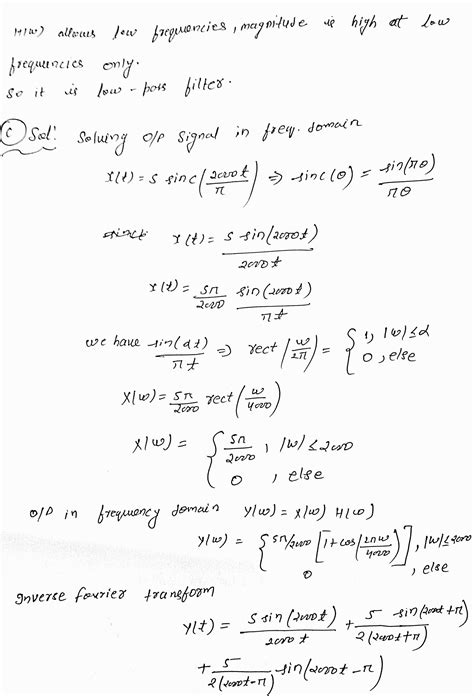 H(w) allows low frequencies, magnitude is high at low
frequencies only.
So it is low-pass filter.
(C) Sol: Solving o/p signal in freq. domain
x(t) = 5 sinc(2000t/π) ⇒ sinc(θ) = sin(πθ)/πθ
x(t) = 5 sin(2000t)/2000t
x(t) = 5π/2000 sin(2000t)/πt
we have sin(αt)/πt ⇒ rect(w/2π) = { 1, |w| ≤ α
0, else
X(w) = 5π/2000 rect(w/4000)
X(w) = { 5π/2000, |w| ≤ 2000
0, else
O/P in frequency domain Y(w) = X(w) H(w)
Y(w) = { 5π/2000 [1+cos(2πw/4000)], |w| ≤ 2000
0, else
Inverse fourier transform
y(t) = 5 sin(2000t)/2000t + 5 sin(2000t+π)/2(2000t+π)
+ 5/2(2000t-π) sin(2000t-π)